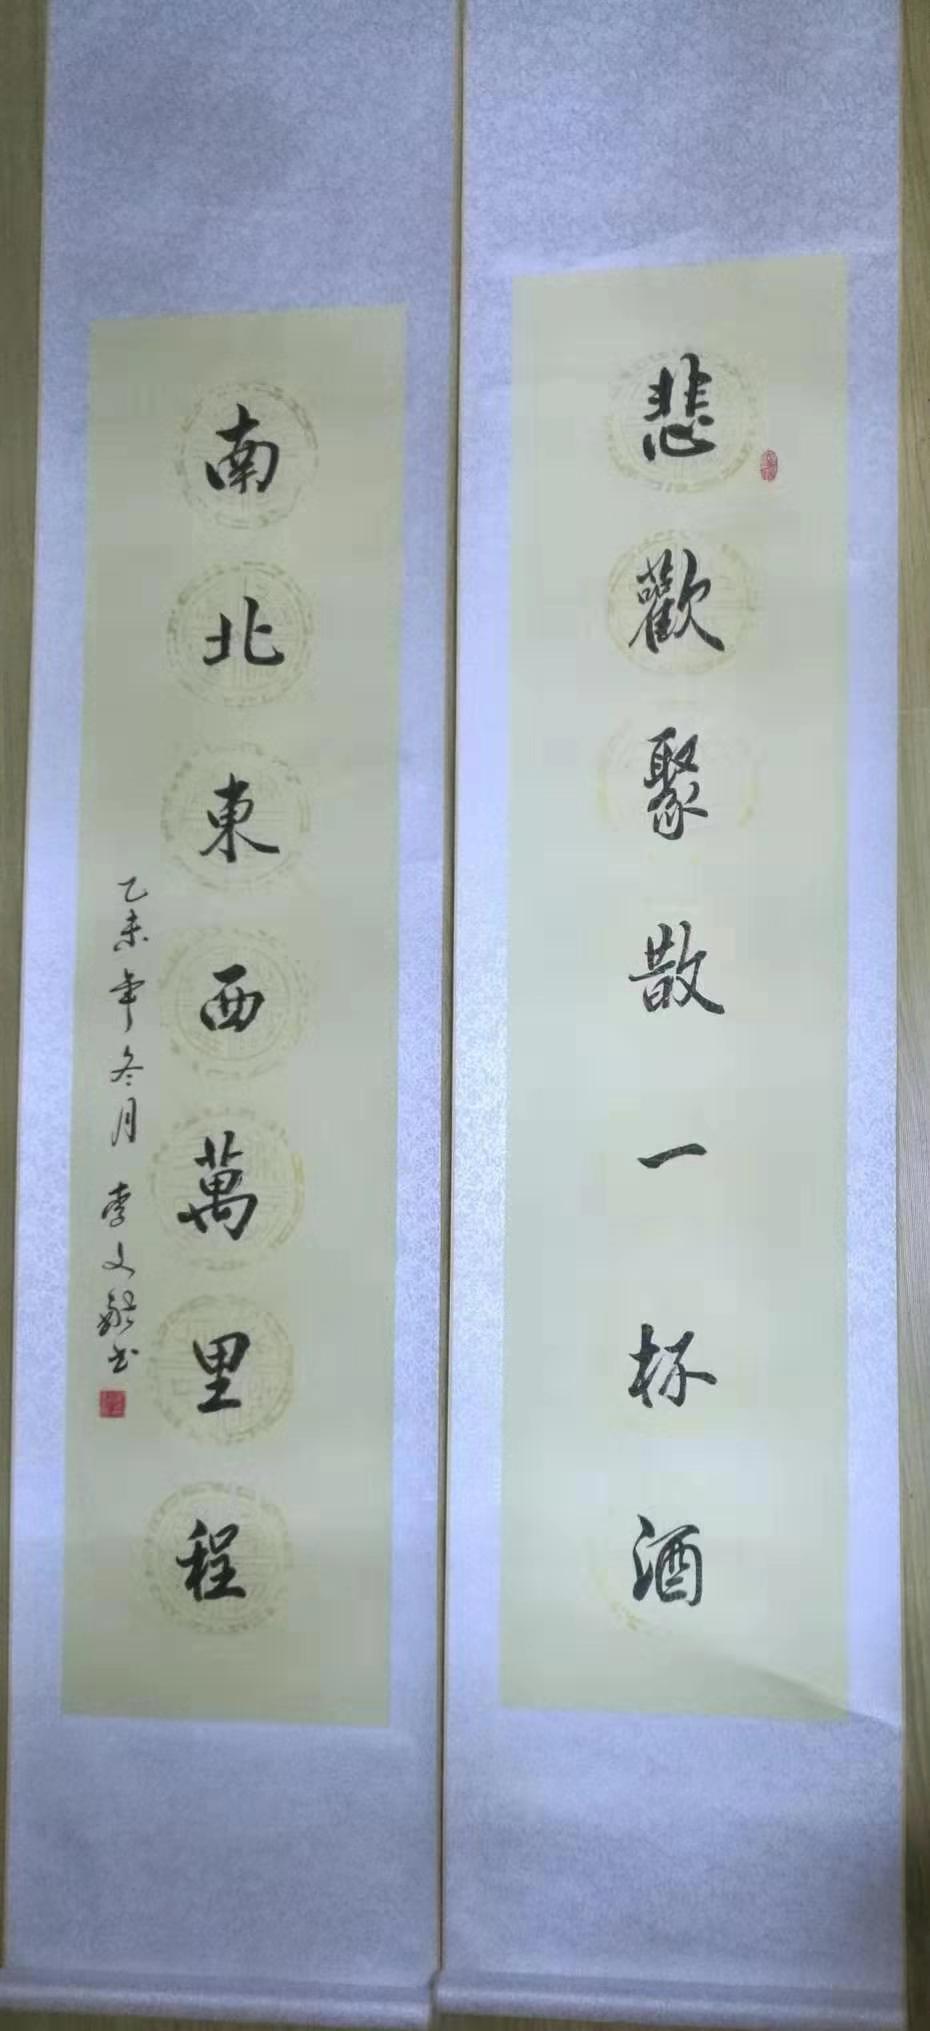 悲歡聚散一杯酒
南北東西萬里程
乙未年冬月 李文毅书